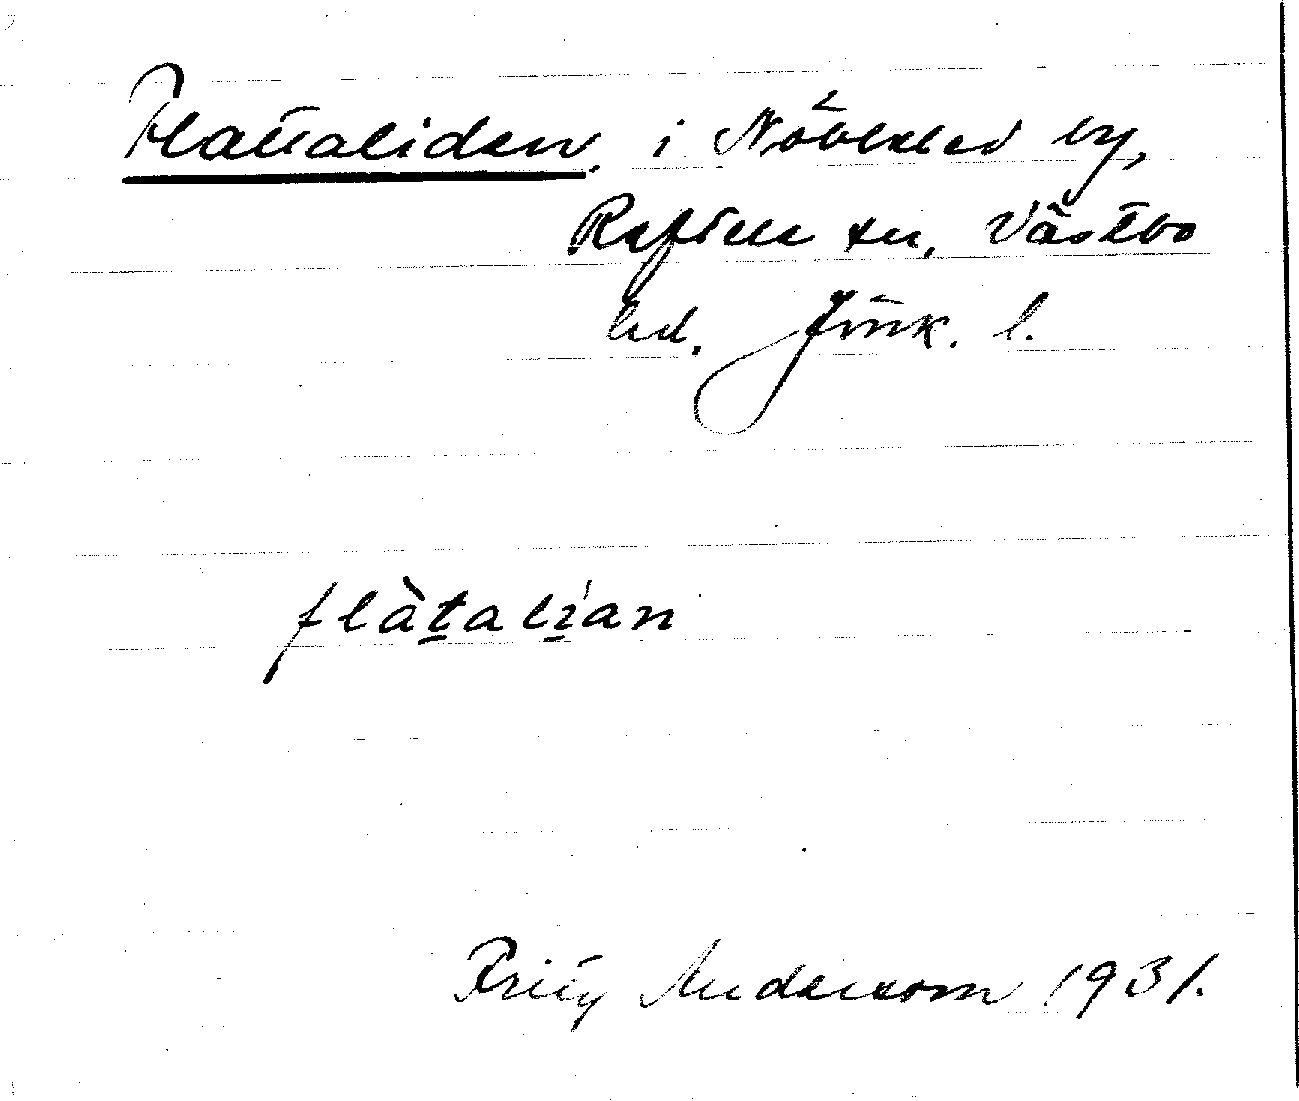 Flattaliden. i Nöbbeled by,
Reftele sn, Västbo
hd. Jönk. l.
flàtalían
Fritz Andersson 1931.